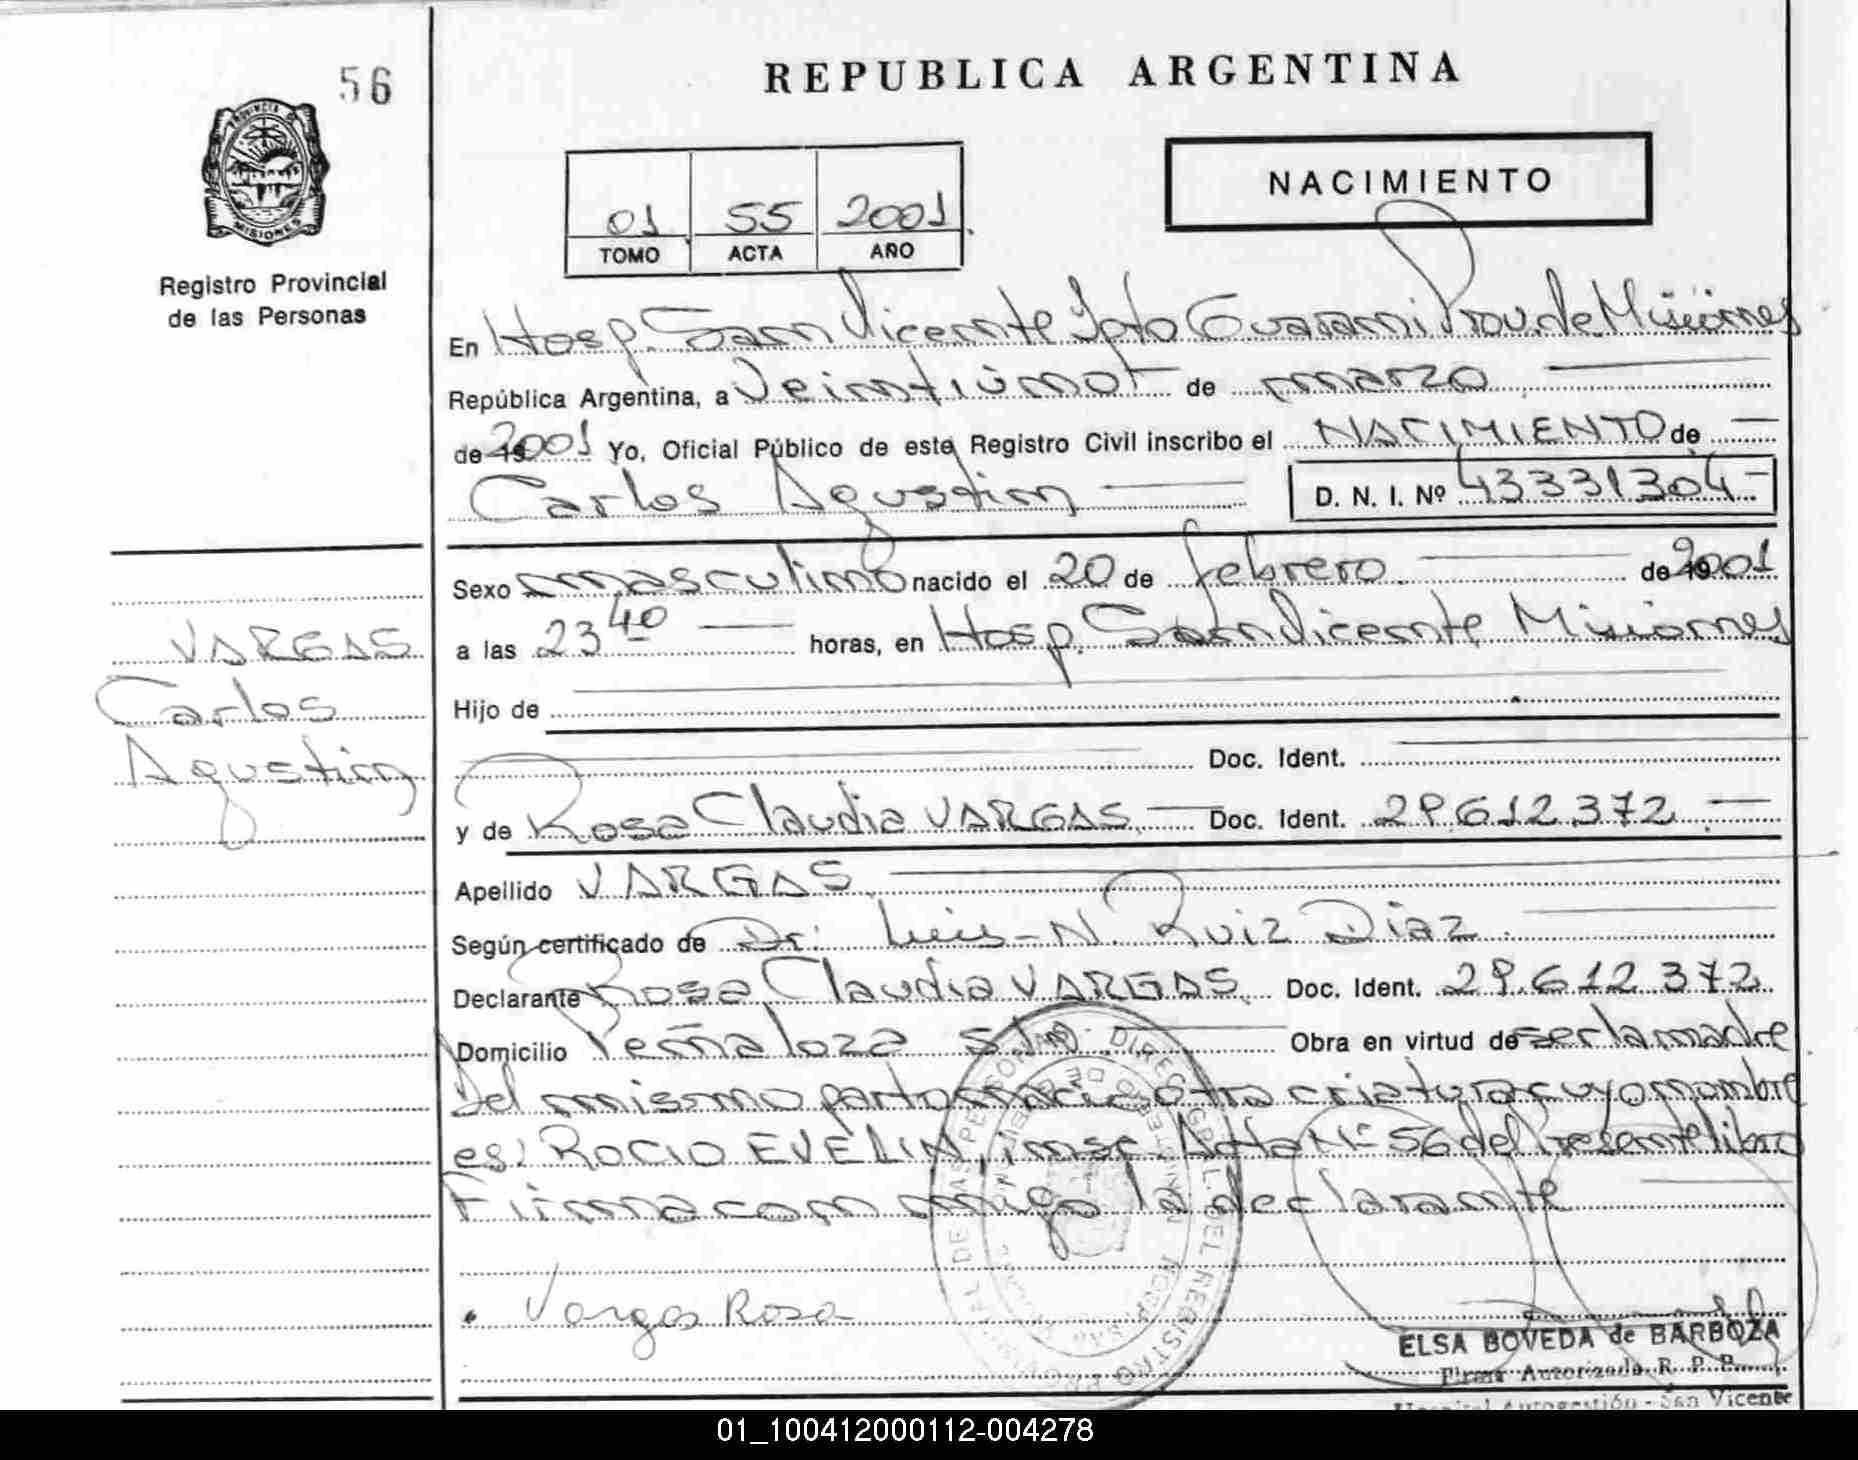 56
REPUBLICA ARGENTINA
PROVINCIA DE MISIONES
Registro Provincial
de las Personas
01 55 2001
TOMO ACTA AÑO
NACIMIENTO
En Hosp. San Vicente Dpto Guarani Prov. de Misiones
República Argentina, a Veintiúno de marzo
de 2001 Yo, Oficial Público de este Registro Civil inscribo el NACIMIENTO de
Carlos Agustin D. N. I. Nº 43331304
Sexo masculino nacido el 20 de febrero de 2001
a las 23 40 horas, en Hosp. San Vicente Misiones
Hijo de
Doc. Ident.
y de Rosa Claudia VARGAS Doc. Ident. 29.612.372
Apellido VARGAS
Según certificado de Dr. Luis N. Ruiz Diaz
Declarante Rosa Claudia VARGAS Doc. Ident. 29.612.372
Domicilio Peñaloza S/Nº Obra en virtud de ser la madre
Del mismo parto nacio otra criatura cuyo nombre
es: ROCIO EVELIN, insc. Acta Nº 56 del Presente libro
Firma con migo la declarante
VARGAS
Carlos
Agustin
Vargas Rosa
ELSA BOVEDA de BARBOZA
Firma Autorizada R. P. P.
Hospital Autogestión - San Vicente
01_100412000112-004278